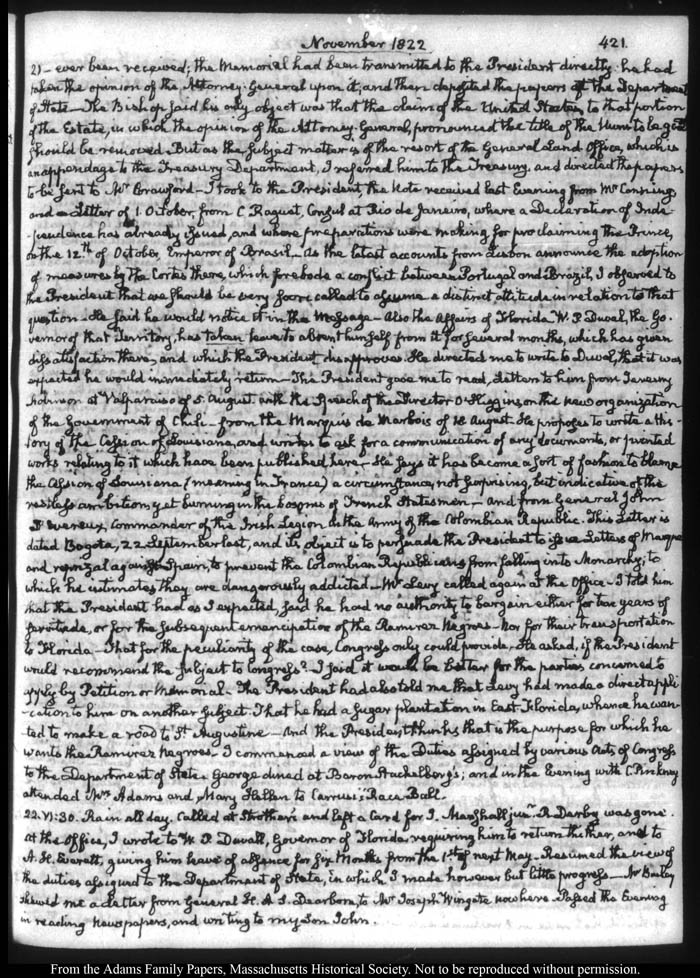 November 1822 421.
21 - ever been received; the Memorial had been transmitted to the President directly. he had
taken the opinion of the Attorney-General upon it, and then deposited the papers at the Department
of State - The Bishop said his only object was that the claim of the United States, to that portion
of the Estate, in which the opinion of the Attorney General, pronounced the title of the Nuns to be good
should be removed. But as the subject matter is of the resort of the General Land Office, which is
an appendage to the Treasury Department, I referred him to the Treasury, and directed the papers
to be sent to Mr Crawford - I took to the President, the Note received last Evening from Mr Canning,
and a Letter of 1. October, from C. Raguet, Consul at Rio de Janeiro, where a Declaration of Inde-
-pendence has already issued, and where preparations were making for proclaiming the Prince,
on the 12th of October, Emperor of Brasil - As the latest accounts from Lisbon announce the adoption
of measures by the Cortes there, which forebode a conflict between Portugal and Brazil, I observed to
the President that we should be very soon called to assume a distinct attitude in relation to that
question - He said he would notice it in the Message - Also the affairs of Florida. W. P. Duval, the Go-
vernor of that Territory, has taken leave to absent himself from it for several months, which has given
dissatisfaction there, and which the President disapproves. He directed me to write to Duval, that it was
expected he would immediately return - The President gave me to read, Letters to him from Jeremy
Robinson at Valparaiso of 5. August with the Speech of the Director O'Higgins, on the new organization
of the Government of Chili - from the Marquis de Marbois of 12 August. He proposes to write a His-
tory of the Cession of Louisiana, and writes to ask for a communication of any documents, or printed
works relating to it which have been published here - He says it has become a sort of fashion to blame
the cession of Louisiana (meaning in France) a circumstance not surprising, but indicative of the
restless ambition yet burning in the bosoms of French Statesmen - and from General John
D'Evereux, Commander of the Irish Legion in the Army of the Colombian Republic. This Letter is
dated Bogota, 22 September last, and its object is to persuade the President to issue Letters of Marque
and reprizal against Spain, to prevent the Colombian Republicans from falling into Monarchy, to
which he intimates they are dangerously addicted - Mr Levy called again at the Office - I told him
that the President had as I expected, said he had no authority to bargain either for ten years of
servitude, or for the subsequent emancipation of the Ramirez Negroes - Nor for their transportation
to Florida - That for the peculiarity of the case, Congress only could provide. He asked, if the President
would recommend the subject to Congress? - I said it would be better for the parties concerned to
apply by Petition or Memorial - The President had also told me that Levy had made a direct appli-
-cation to him on another subject. That he had a sugar plantation in East Florida, whence he wan-
ted to make a road to St Augustine - And the President thinks that is the purpose for which he
wants the Ramirez Negroes - I commenced a view of the Duties assigned by various Acts of Congress
to the Department of State. George dined at Baron Stackelberg's; and in the Evening with C. Pinkney
attended Mrs Adams and Mary Hellen to Carrusi's Race Ball.
22. VI:30. Rain all day. Called at Strother's and left a Card for J. Marshall junr. R. Darby was gone.
At the Office, I wrote to W. P. Duvall, Governor of Florida requiring him to return thither, and to
A. H. Everett, giving him leave of absence for six Months from the 1st of next May - Resumed the view of
the duties assigned to the Department of State, in which I made however but little progress - Mr Bailey
shewed me a Letter from General H. A. S. Dearborn, to Mr Joseph Wingate now here. Passed the Evening
in reading Newspapers, and writing to my Son John.
From the Adams Family Papers, Massachusetts Historical Society. Not to be reproduced without permission.